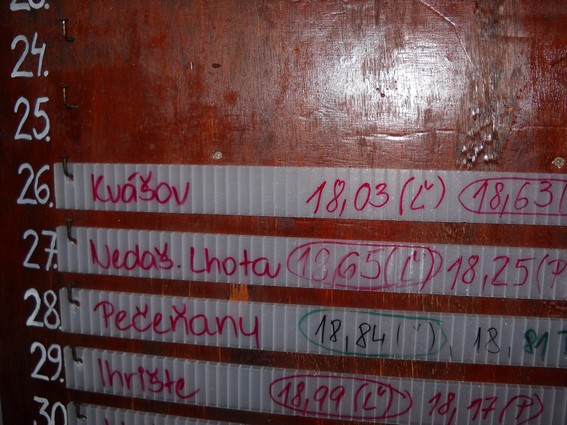 24.
25.
26. Kvášov 18,03 (Ľ) 18,63 (
27. Nedaš. Lhota 18,65 (Ľ) 18,25 (P
28. Pečeňany 18,84 (Ľ), 18,81
29. Ihrište 18,99 (Ľ) 18,17 (P)
30.